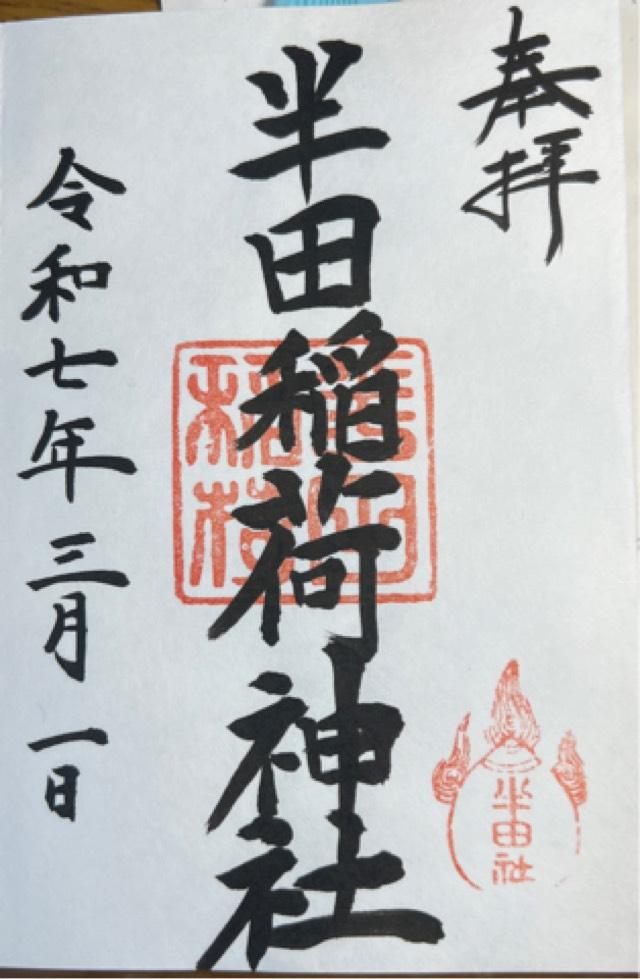 奉拝
半田稲荷神社
令和七年三月一日
半田社